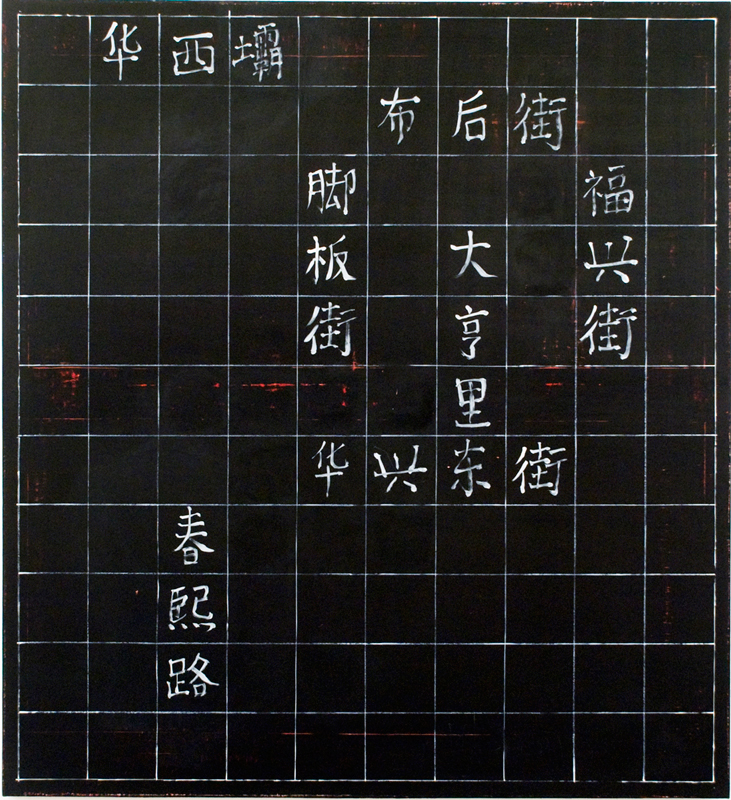 华西坝
布后街
脚板街
福兴街
大亨里
华兴东街
春熙路